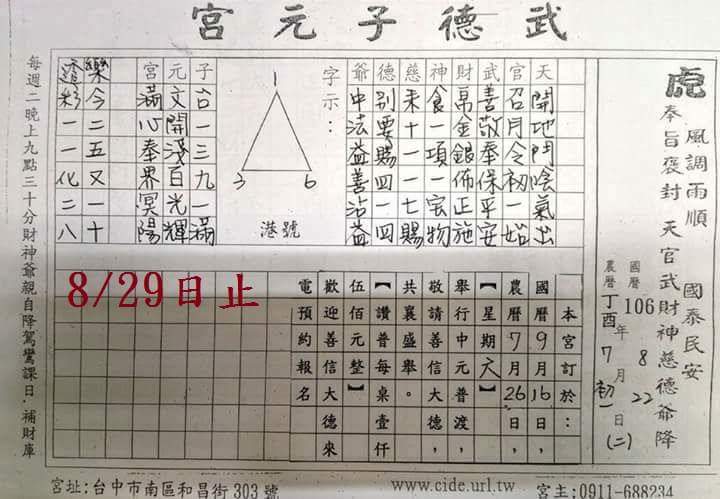 武德子元宮
虎
風調雨順 國泰民安
奉旨褒封 天官武財神慈德爺降
國曆106年8月22日(二)
農曆丁酉7初一
天開地門陰氣出
官召月令初一始
武善敬奉保平安
財帛金銀佈正施
神食一項一宅物
慈來十一一七賜
德別要賜四一四
爺中法益善沾益
字示：
1
3 6
港號
子台一三九一滿
元文開淺百光輝
宮滿心奉界冥陽
樂今二五又一十
透彩一一化二八
本宮訂於：
國曆9月16日，
農曆7月26日，
【星期六】
舉行中元普渡，
敬請善信大德
共襄盛舉。
【讚普每桌壹仟
伍佰元整】
歡迎善信大德來
電預約報名
8/29日止
每週二晚上九點三十分財神爺親自降駕鸞課日，補財庫
宮址:台中市南區和昌街303號
www.cide.url.tw
宮主:0911-688234